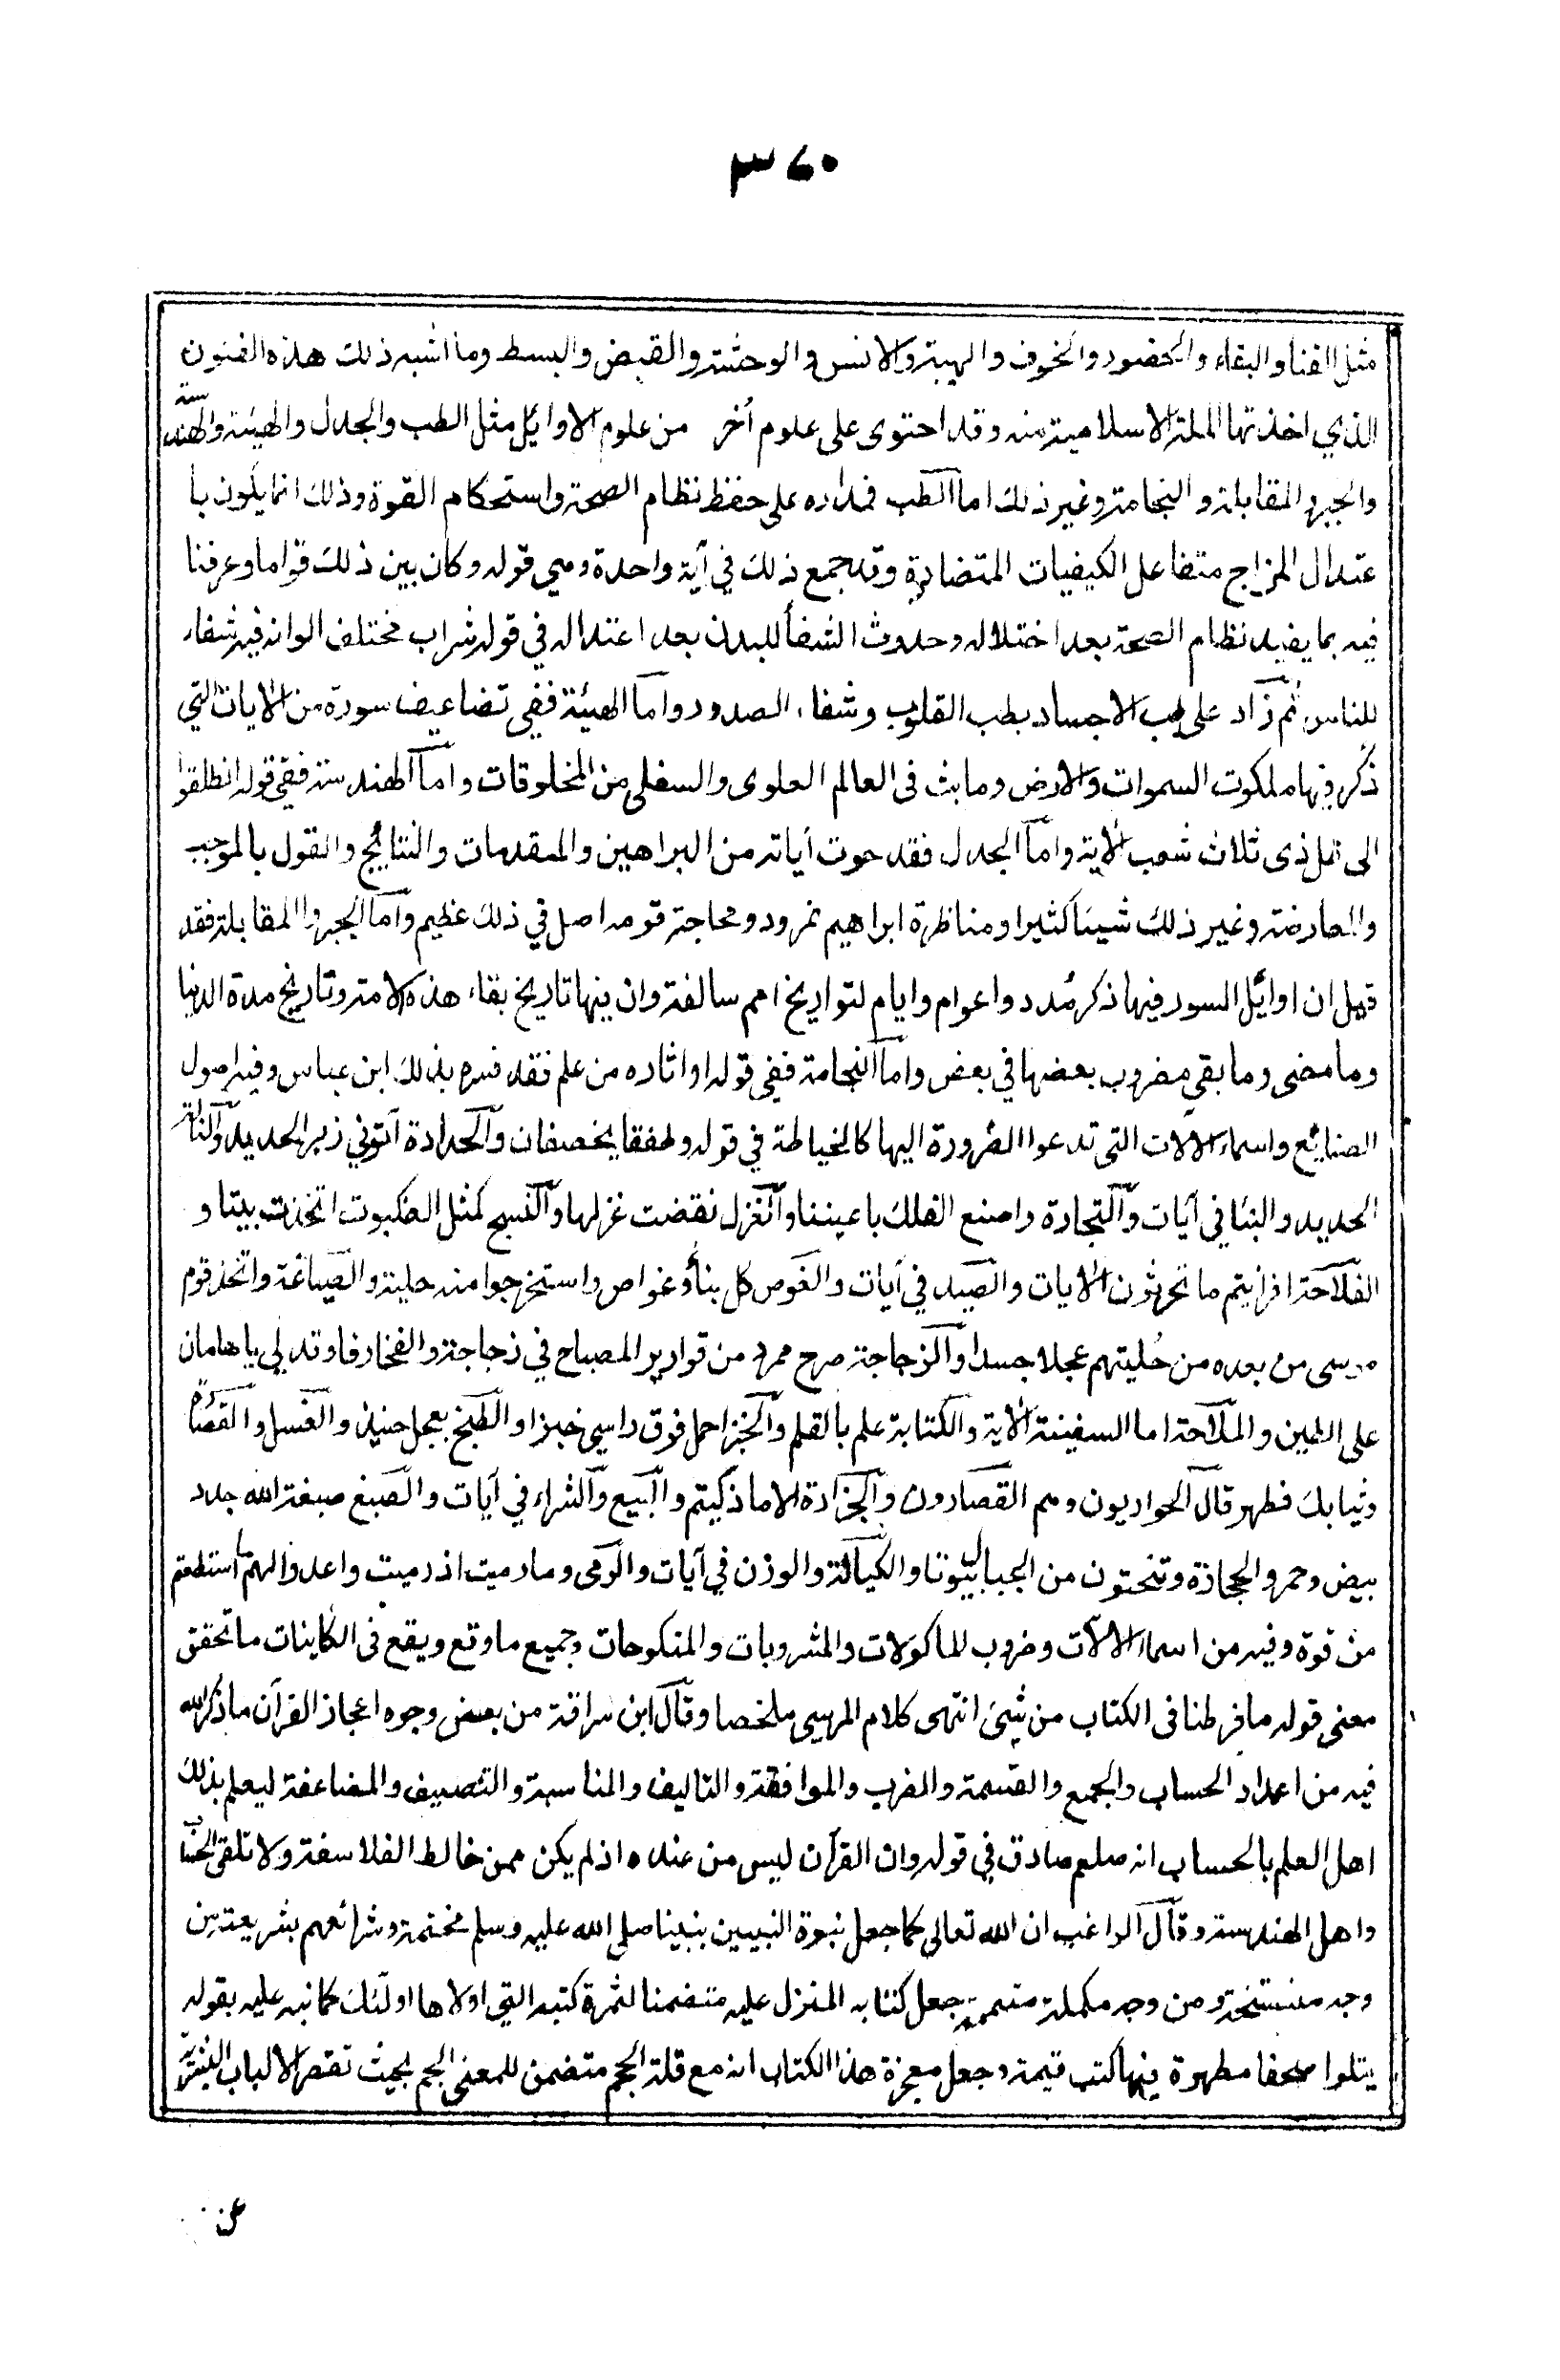 ٣٦٠
مثل الفنا والبقاء والحضور والخوف والهيبة والانس والوحشة والقبض والبسط وما اشبه ذلك هذه الفنون
الذي اخذتها الملة الاسلامية منه وقد احتوى على علوم أخر من علوم الاوايل مثل الطب والجدل والهيئة والهندسة
والجبر والمقابلة والنجامة وغير ذلك اما الطب فمداره على حفظ نظام الصحة واستحكام القوة وذلك انما يكون با
عتدال المزاج متفاعل الكيفيات المتضادة وقد جمع ذلك في آية واحدة وهي قوله وكان بين ذلك قواما وعرفنا
فيه بما يفيد نظام الصحة بعد اختلاله وحدوث الشفأ للبدن بعد اعتداله في قوله شراب مختلف الوانه فيه شفاء
للناس ثم زاد على طب الاجساد بطب القلوب وشفاء الصدور واما الهيئة ففي تضاعيف سورة من الايات التي
ذكر فيها ملكوت السموات والارض وما بث فى العالم العلوى والسفلى من المخلوقات واما الهندسة ففي قوله انطلقوا
الى ظل ذى ثلاث شعب الاية واما الجدل فقد حوت أياته من البراهين والمقدمات والنتايج والقول بالموجب
والمعارضة وغير ذلك شيئا كثيرا ومناظرة ابراهيم نمرود ومحاجة قومه اصل في ذلك عظيم واما الجبر والمقابلة فقد
قيل ان اوايل السور فيها ذكر مُدد واعوام وايام لتواريخ امم سالفة وان فيها تاريخ بقاء هذه الامة وتاريخ مدة الدنيا
وما مضى وما بقي مضروب بعضها في بعض واما النجامة ففي قوله او اثاره من علم فقد فسره بذلك ابن عباس وفيه اصول
الصنايع واسماء الالات التي تدعوا الضرورة اليها كالخياطة في قوله وطفقا يخصفان والحدادة آتوني زبر الحديد وألنا له
الحديد والبنا في آيات والتجارة واصنع الفلك باعيننا والغزل نقضت غزلها والنسج كمثل العنكبوت اتخذت بيتا و
الفلاحة افرايتم ما تحرثون الايات والصيد في آيات والغوص كل بناء وغواص واستخرجوا منه حلية والصياغة واتخذ قوم
موسى من بعده من حُليتهم عجلا جسدا والزجاجة صرح ممرد من قوارير المصباح في زجاجة والفخار فاوقد لي يا هامان
على الطين والملاحة اما السفينة الاية والكتابة علم بالقلم والخبز احمل فوق راسي خبزا والطبخ بعجل حنيذ والغسل والقصارة
وثيابك فطهر قال الحواريون وهم القصارون والجزارة الا ما ذكيتم والبيع والشراء في آيات والصبغ صبغة الله جدد
بيض وحمر والحجارة وتنحتون من الجبال بيوتا والكيالة والوزن في آيات والرمى وما رميت اذ رميت واعدوا لهم ما استطعتم
من قوة وفيه من اسماء الالآت وضروب الماكولات والمشروبات والمنكوحات وجميع ما وقع ويقع فى الكاينات ما تحقق
معنى قوله ما فرطنا فى الكتاب من شيئ انتهى كلام المرسى ملخصا وقال ابن سراقة من بعض وجوه اعجاز القرآن ما ذكر الله
فيه من اعداد الحساب والجمع والقسمة والضرب والموافقة والتاليف والمناسبة والتنصيف والمضاعفة ليعلم بذلك
اهل العلم بالحساب انه صلعم صادق في قوله وان القرآن ليس من عنده اذ لم يكن ممن خالط الفلاسفة ولا تلقى الحساب
واهل الهندسة وقال الراغب ان الله تعالى كما جعل نبوة النبيين بنبينا صلى الله عليه وسلم مختتمة وشرائعهم بشريعته من
وجه منتسخة ومن وجه مكملة متممة جعل كتابه المنزل عليه متضمنا لثمرة كتبه التي اولاها اولئك كما نبه عليه بقوله
يتلوا صحفا مطهرة فيها كتب قيمة وجعل معجزة هذا الكتاب انه مع قلة الحجم متضمن للمعنى الجم بحيث تقصر الالباب البشرية
عن